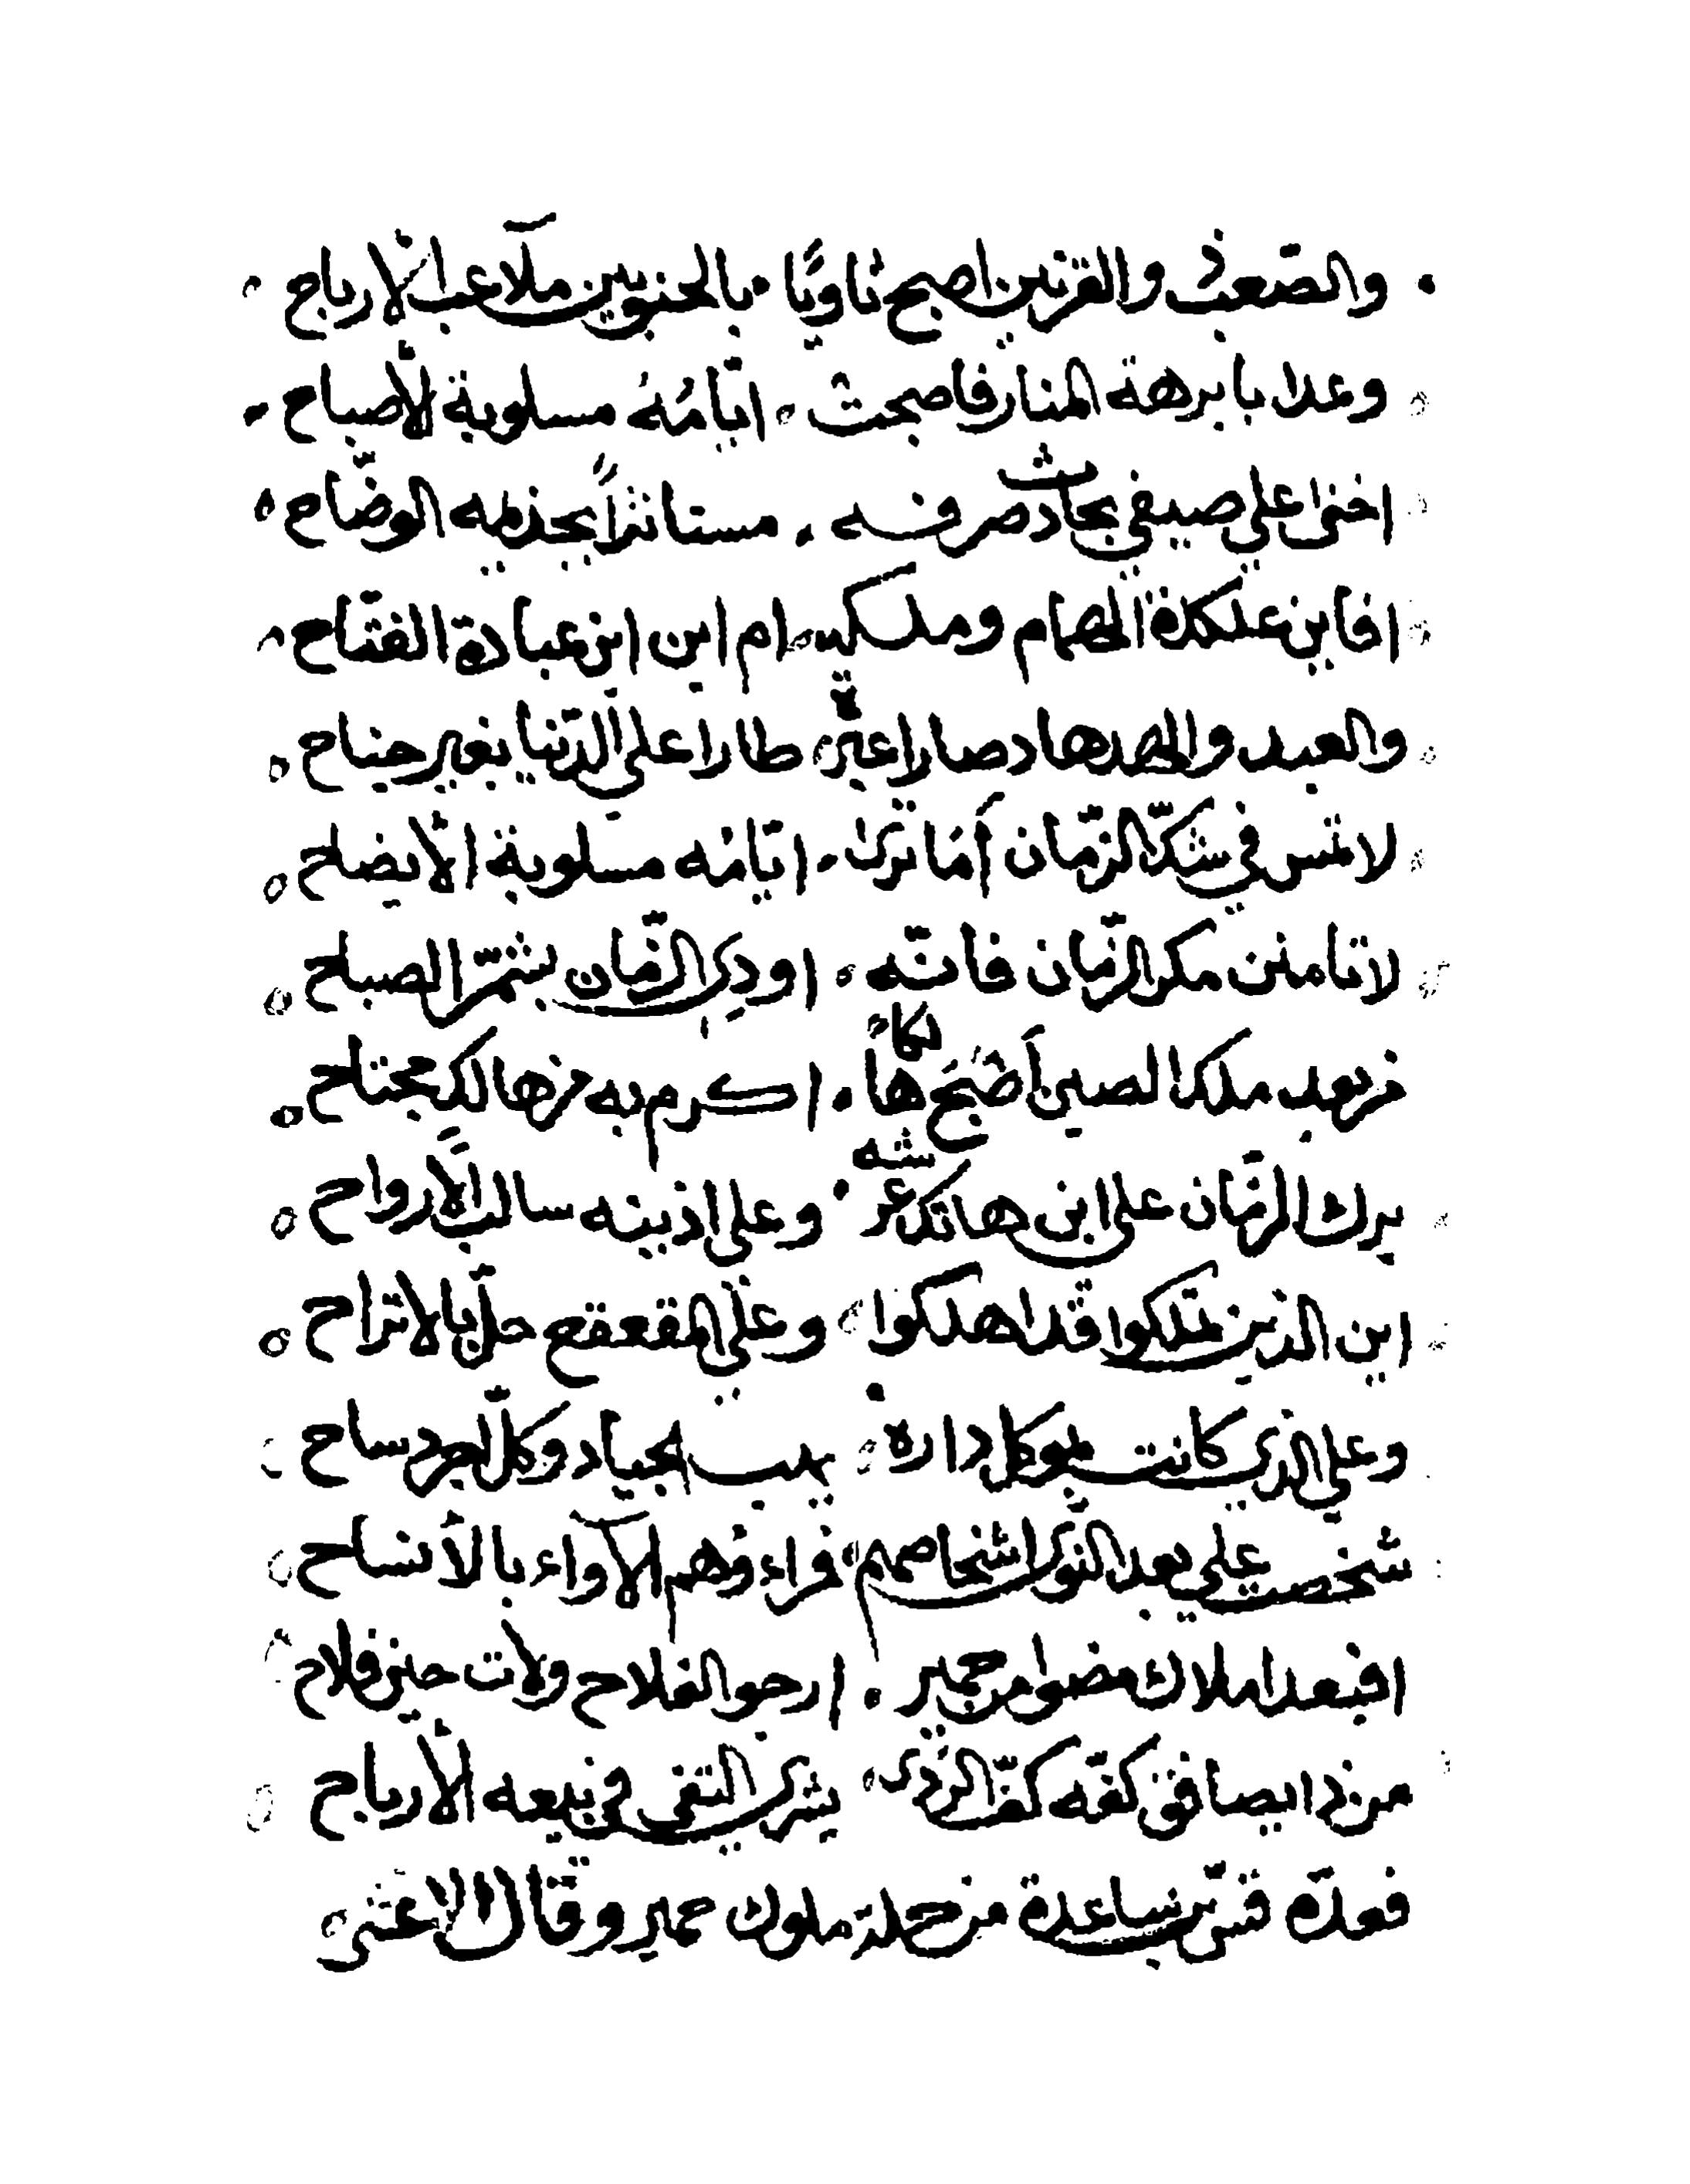 والصّعب ذو القرنين اصبح ثاويًا بالحنو بين ملاعب الأرباح
وغدا بابرهة المنار فاصبحت ايّامُهُ مسلوبة الأصباح
اخنى على صيفي بحادث صرفه مستاثرًا بجذيمه الوضّاح
افاين علكدة الهمام وملكه ام اين ابن عبادة الفتّاح
والعبد والهدهاد صارا عبرة طارا على الدّنيا بغير جناح
لا تمس في شكّ الزّمان أمَا ترى ايّامُه مسلوبة الأيضاح
لا تامنن مكر الزّمان فانّه اودى الزّمان بشمّر الصباح
من بعد ملك الصين أصْبَحَ هالكاً اكرم به من هالك مجتاح
برك الزّمان على ابن هاتك عرشه وعلى اذينه سالب الأرواح
اين الذين تملكوا قد اهلكوا وعلى المقعقع حلّ بالاتراح
وعلى الذي كانت بموكل داره يهب الجياد وكلّ اجرد ساح
شخصت على بعد النّوى اشخاصهم فراءوهم الآواء بالأنساح
افبعد املاك مضوا من حمير ارجو الفلاح ولات حين فلاح
من ذا يصافق كفّه كفّ الرّدى يشري التقى في بيعه الأرباح
فعدّه قسّ بن ساعدة من جملة ملوك حمير وقال الاعشى